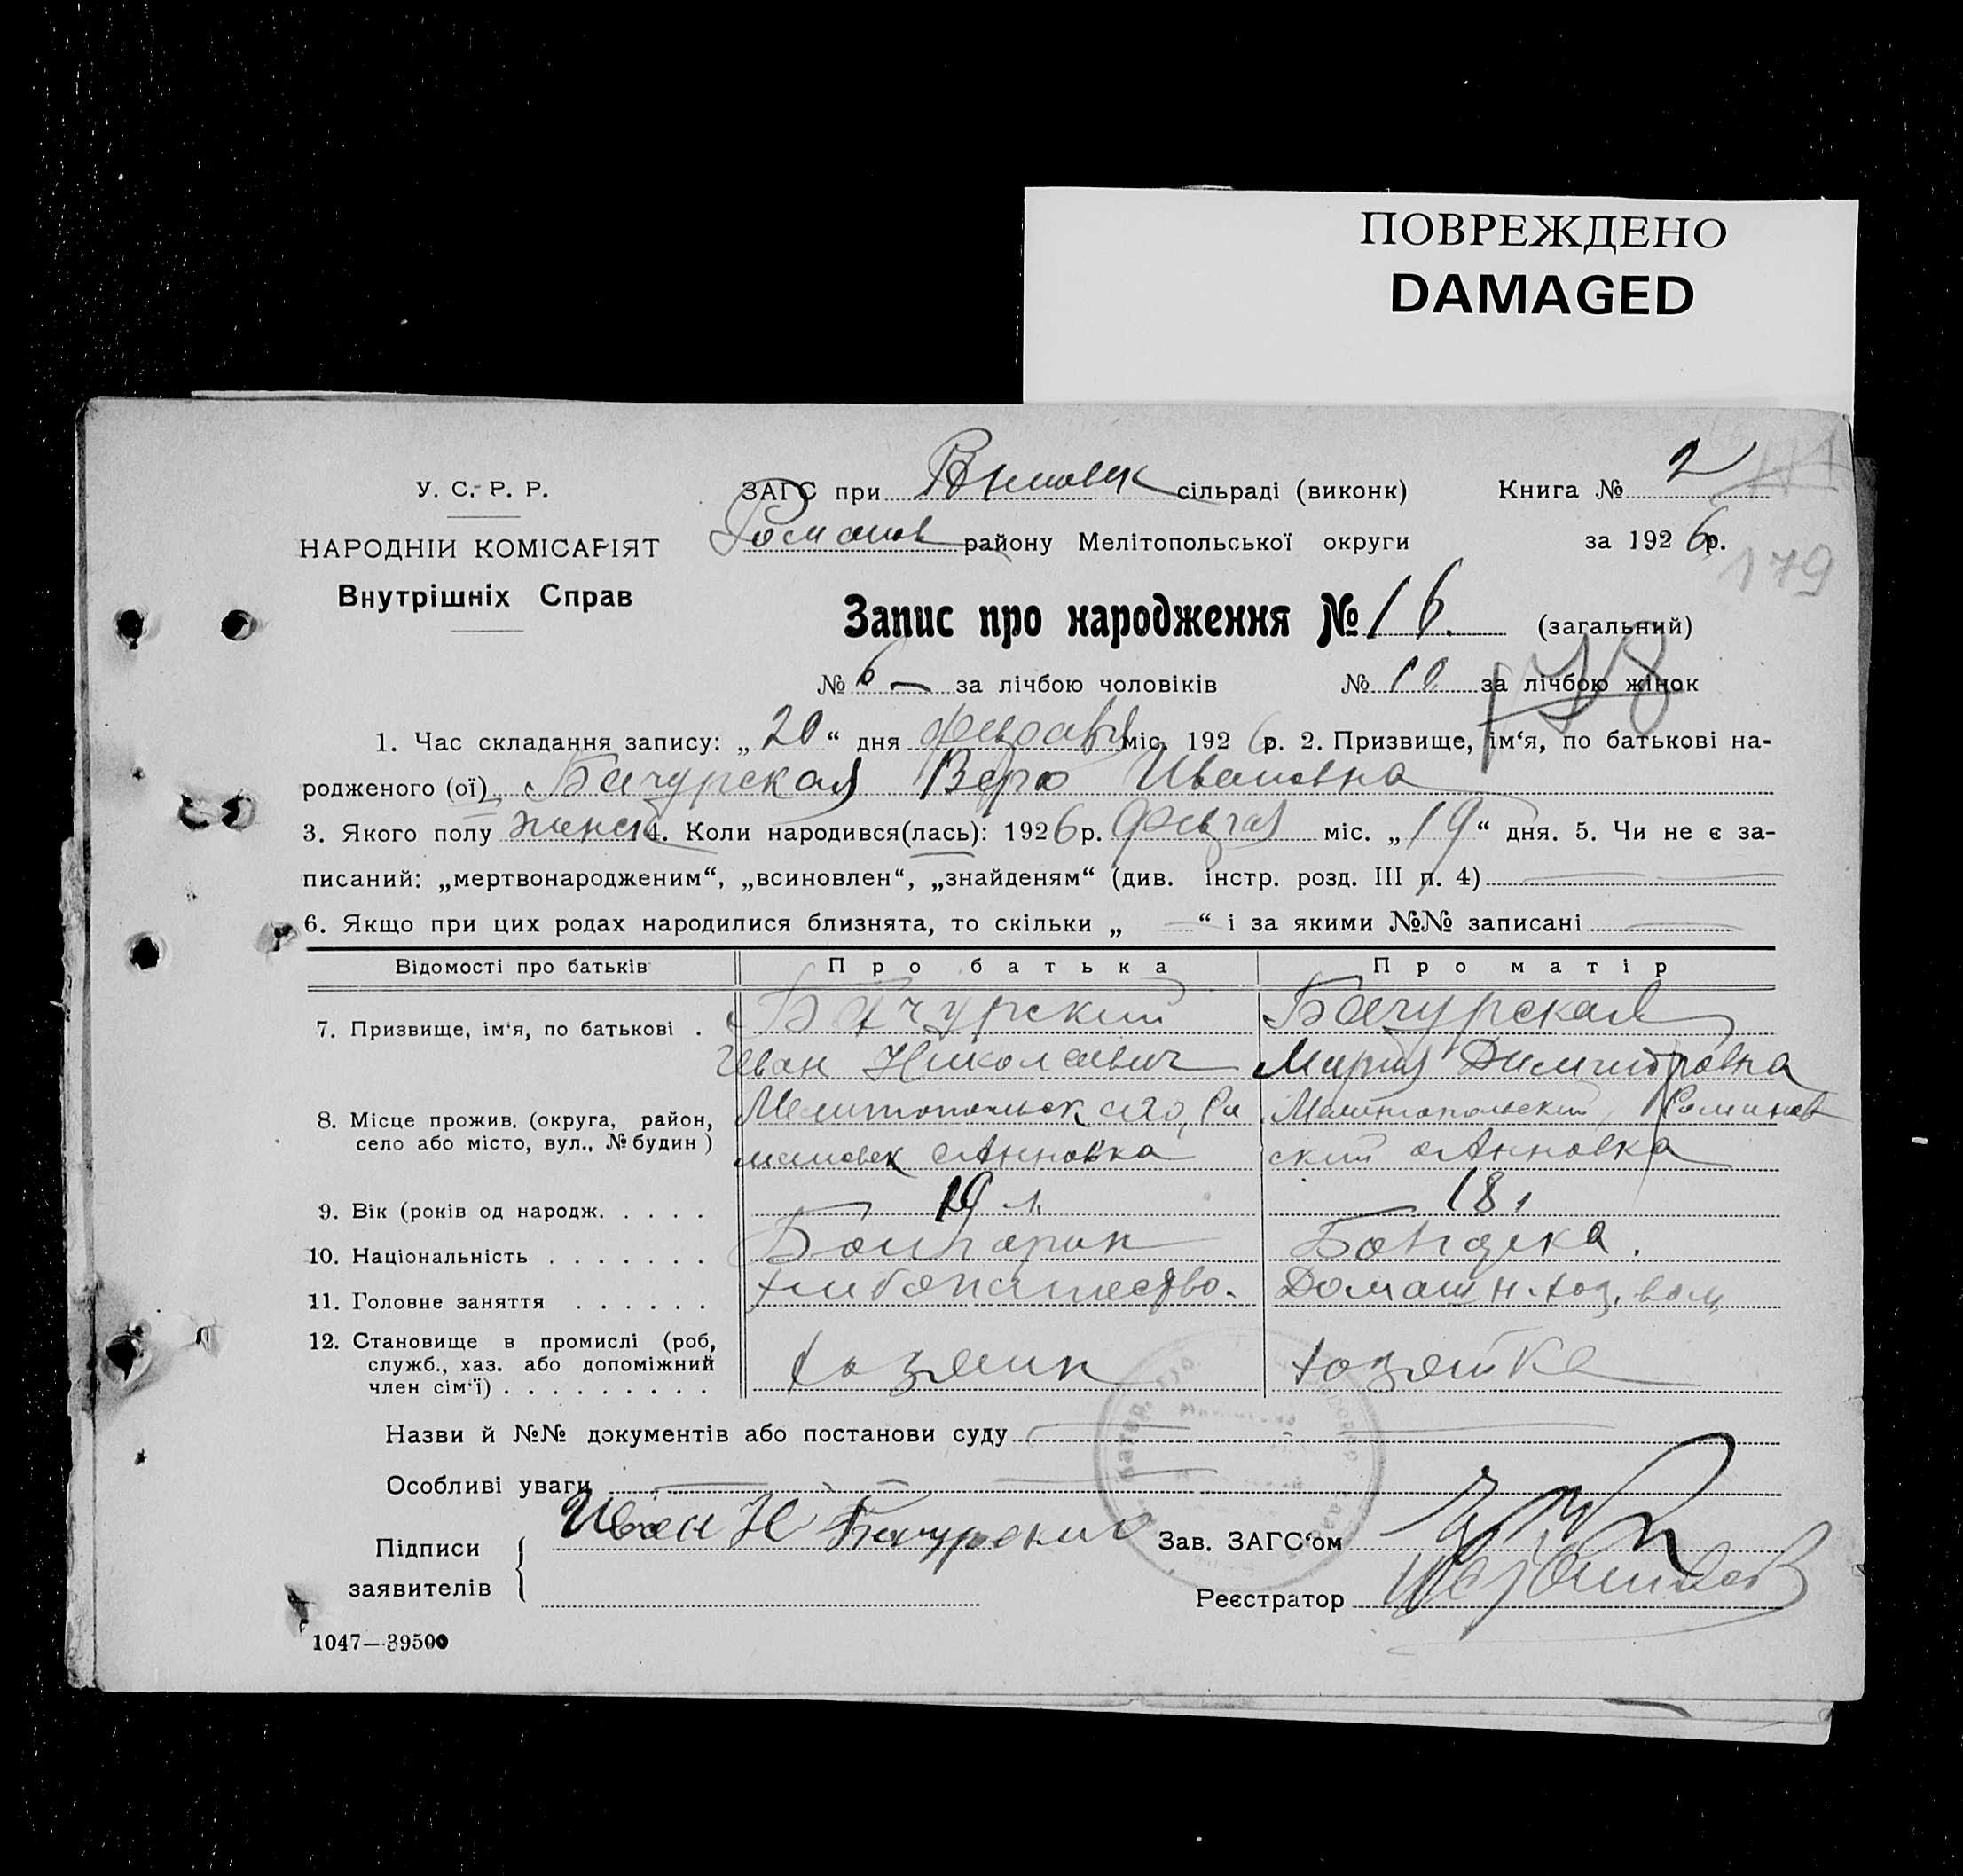 ПОВРЕЖДЕНО
DAMAGED
У. С. Р. Р.
НАРОДНІЙ КОМІСАРІЯТ
Внутрішніх Справ
ЗАГС при сільраді (виконк)
Романов району Мелітопольської округи
Книга № 2
за 1926 р.
179
Запис про народження № 16. (загальний)
178
№ 6 — за лічбою чоловіків № 10 за лічбою жінок
1. Час складання запису: „20“ дня февраля міс. 1926 р. 2. Призвище, ім‘я, по батькові на-
родженого (ої) Бачурская Вера Ивановна
3. Якого полу женск 4. Коли народився(лась): 1926 р. міс. „19“ дня. 5. Чи не є за-
писаний: „мертвонародженим“, „всиновлен“, „знайденям“ (див. інстр. розд. III п. 4)
6. Якщо при цих родах народилися близнята, то скільки „ — “ і за якими №№ записані —
Відомості про батьків Про батька Про матір
7. Призвище, ім‘я, по батькові . Бачурский Бачурская
Иван Николаевич Мария Димитровна
8. Місце прожив. (округа, район, село або місто, вул., № будин ) Мелитопольск Ро Мелитопольский Романов
мановск Анновка ский Анновка
9. Вік (років од народж. . . . . 19 л. 18 л
10. Національність . . . . . . . Болгарин Болгарка.
11. Головне заняття . . . . . . Хлебопашество. Домашн. хоз.
12. Становище в промислі (роб, служб., хаз. або допоміжний член сім‘ї) . . . . . . . . . хозяин хозяйка
Назви й №№ документів або постанови суду —
Особливі уваги —
Підписи заявителів Иван Н Бачурский
Зав. ЗАГС‘ом
Реєстратор
1047—39500